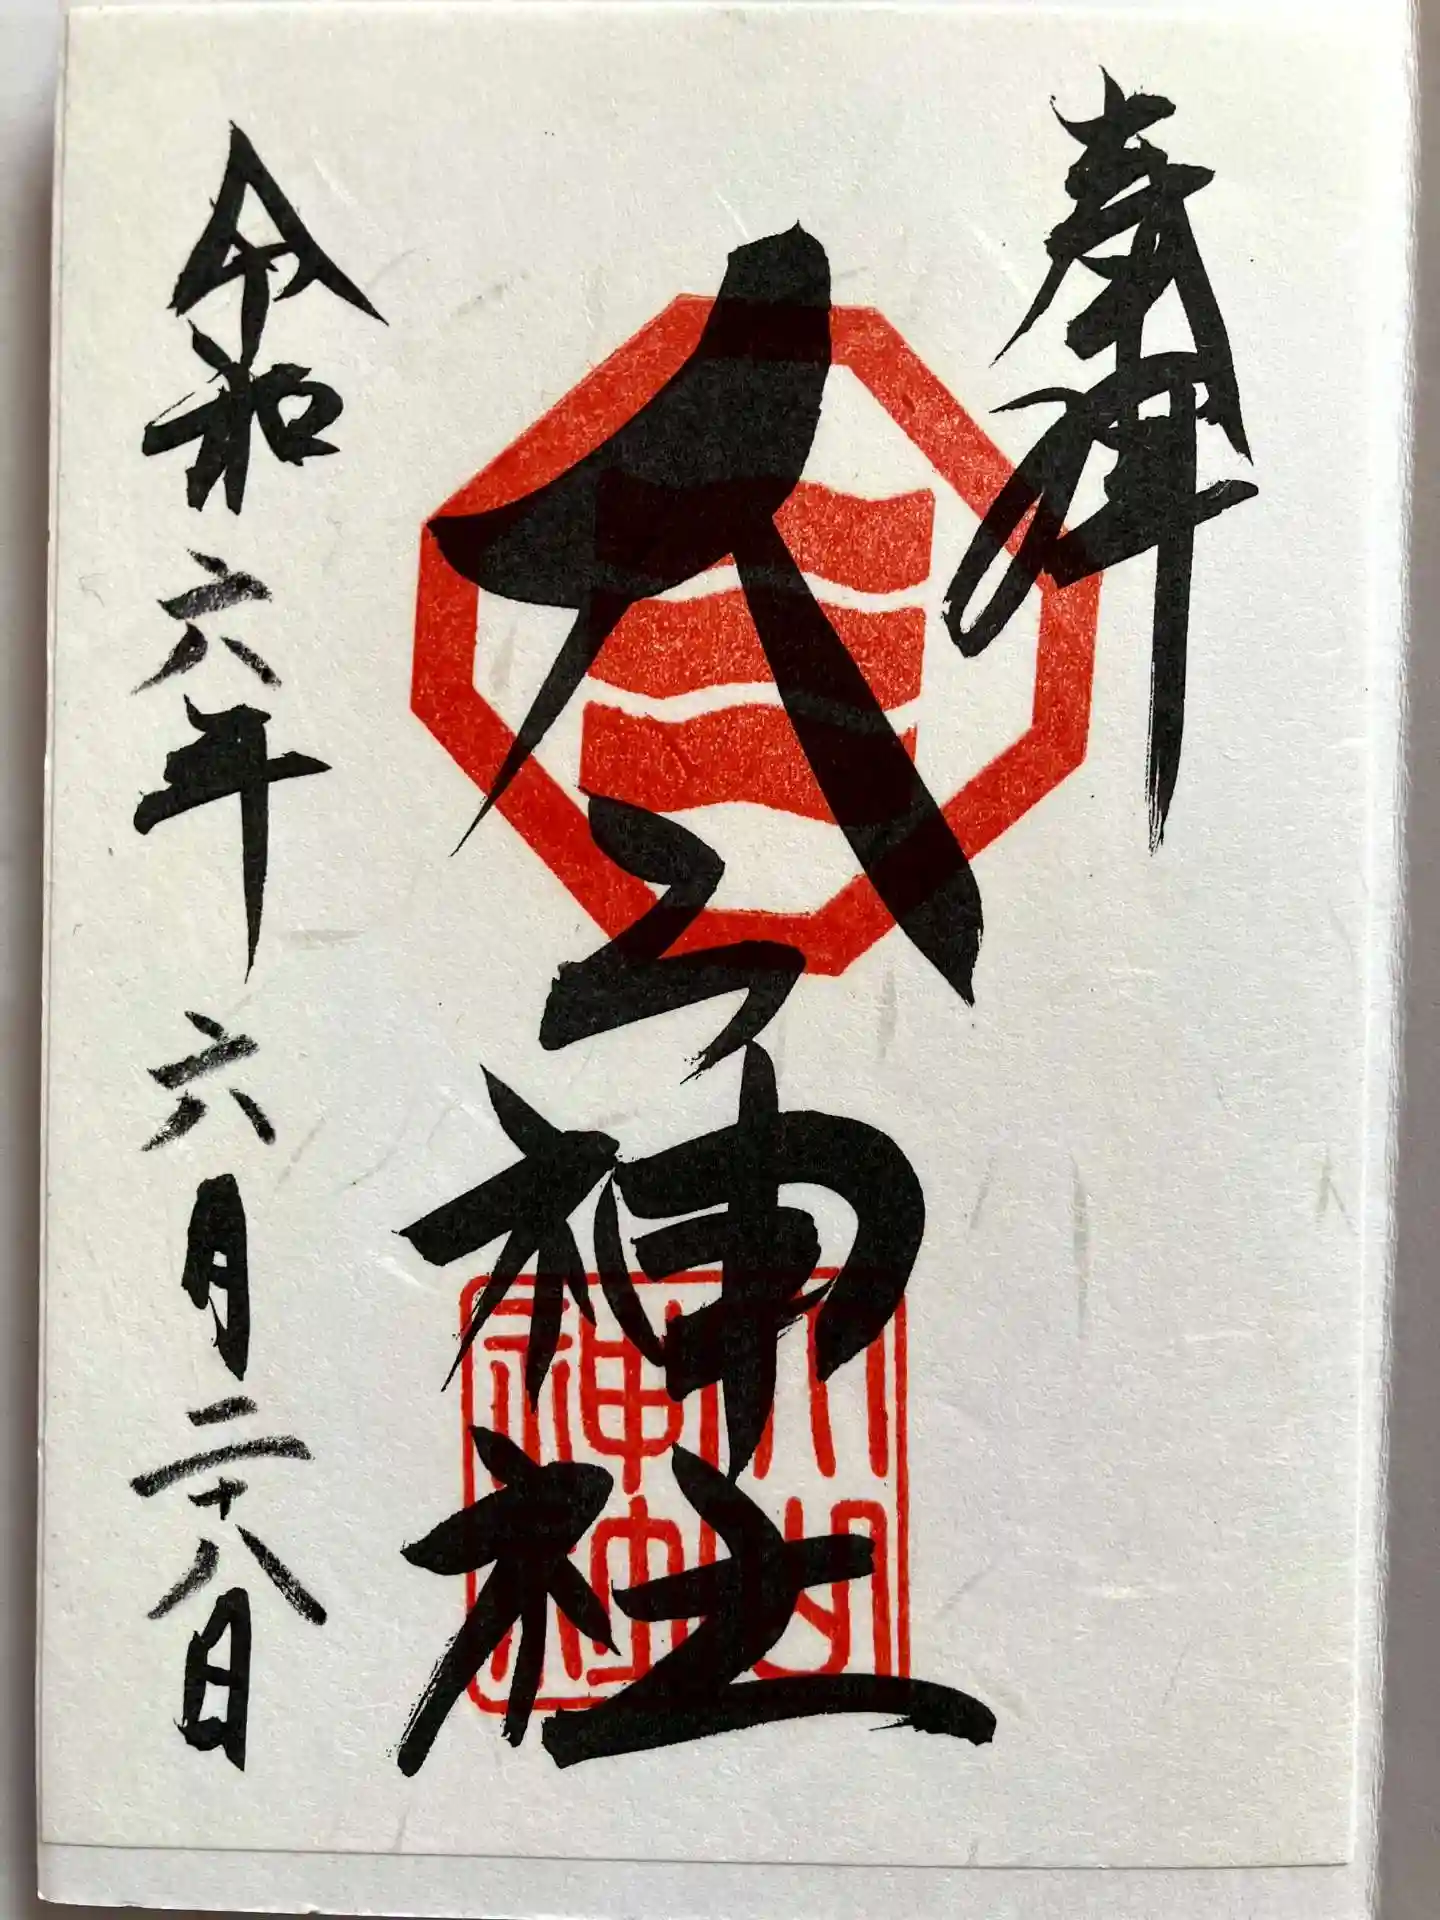 奉拝
神社
神社
令和六年六月二十八日